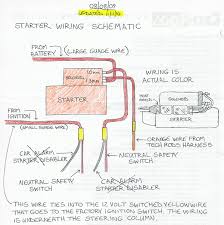 02/08/09
UPDATED
STARTER WIRING SCHEMATIC
FROM BATTERY
(LARGE GUAGE WIRE)
SOLENOID
10mm
STARTER
WIRING IS
ACTUAL COLOR
SOLENOID
STARTER
FROM IGNITION
(SMALL GUAGE WIRE)
ORANGE WIRE FROM
TECH MODS HARNESS
CAR ALARM
STARTER DISABLER
NEUTRAL SAFETY
SWITCH
NEUTRAL SAFETY
SWITCH
CAR ALARM
STARTER DISABLER
THIS WIRE TIES INTO THE 12 VOLT SWITCHED YELLOW WIRE
THAT GOES TO THE FACTORY IGNITION SWITCH. THE WIRING
IS UNDERNEATH THE STEERING COLUMN.